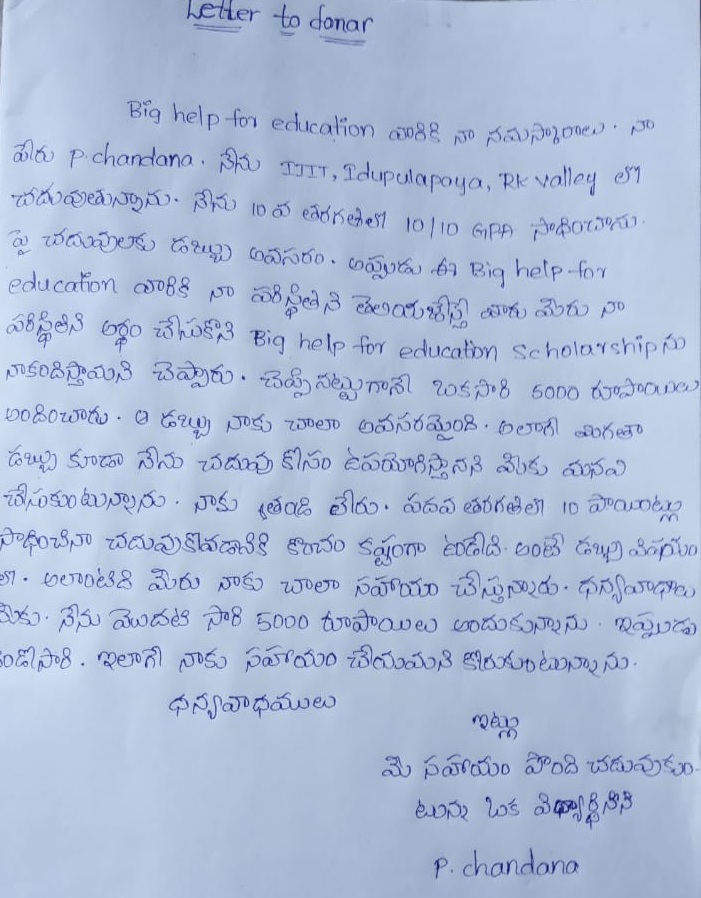 Letter to donar
Big help for education వారికి నా నమస్కారాలు. నా
పేరు P.chandana. నేను IIIT, Idupulapaya, RK valley లో
చదువుతున్నాను. నేను 10 వ తరగతిలో 10/10 GPA సాధించాను.
పై చదువులకు డబ్బు అవసరం. అప్పుడు ఈ Big help for
education వారికి నా పరిస్థితిని తెలియజేస్తే వారు మీరు నా
పరిస్థితిని అర్థం చేసుకొని Big help for education Scholarship ను
నాకందిస్తామని చెప్పారు. చెప్పినట్టుగానే ఒకసారి 5000 రూపాయిలు
అందించారు. ఆ డబ్బు నాకు చాలా అవసరమైంది. అలాగే మిగతా
డబ్బు కూడా నేను చదువు కోసం ఉపయోగిస్తానని మీకు మనవి
చేసుకుంటున్నాను. నాకు తండ్రి లేరు. పదవ తరగతిలో 10 పాయింట్లు
సాధించినా చదువుకోవడానికి కొంచం కష్టంగా ఉండేది. అంటే డబ్బు విషయం
లో. అలాంటిది మీరు నాకు చాలా సహాయం చేస్తున్నారు. ధన్యవాధాలు
మీకు. నేను మొదటి సారి 5000 రూపాయిలు అందుకున్నాను. ఇప్పుడు
రెండోసారి. ఇలాగే నాకు సహాయం చేయమని కోరుకుంటున్నాను.
ధన్యవాధములు
ఇట్లు
మీ సహాయం పొంది చదువుకుం
టున్న ఒక విధ్యార్థినిని
P. chandana